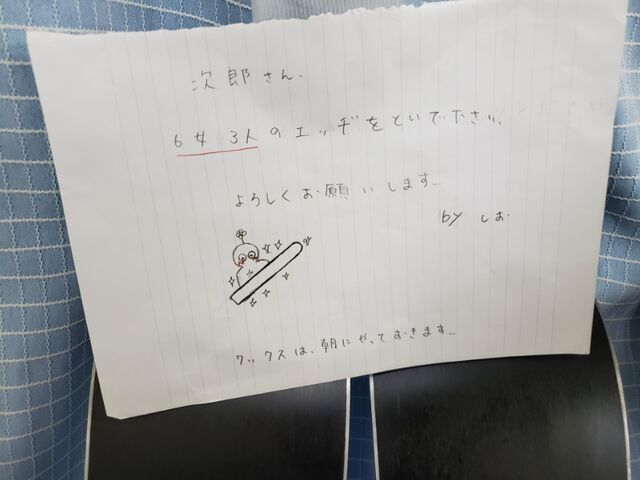 次郎さん、
6女 3人のエッヂをといで下さい、
よろしくお願いします…
by しお
ワックスは、朝にやっておきます…